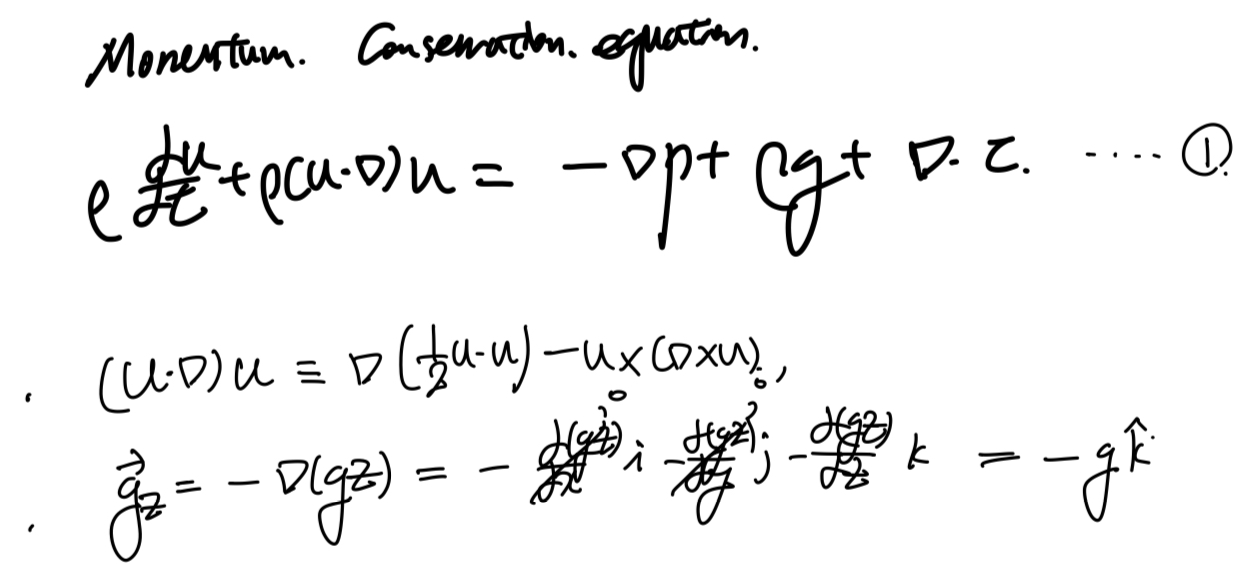 Momentum. Conservation. equation.
ρ ∂u/∂t + ρ(u·∇)u = -∇p + ρg + ∇·τ. ····· ①
(u·∇)u ≡ ∇(½u·u) - u×(∇×u),
g⃗z = -∇(gz) = - ∂(gz)/∂x i - ∂(gz)/∂y j - ∂(gz)/∂z k = -gk̂